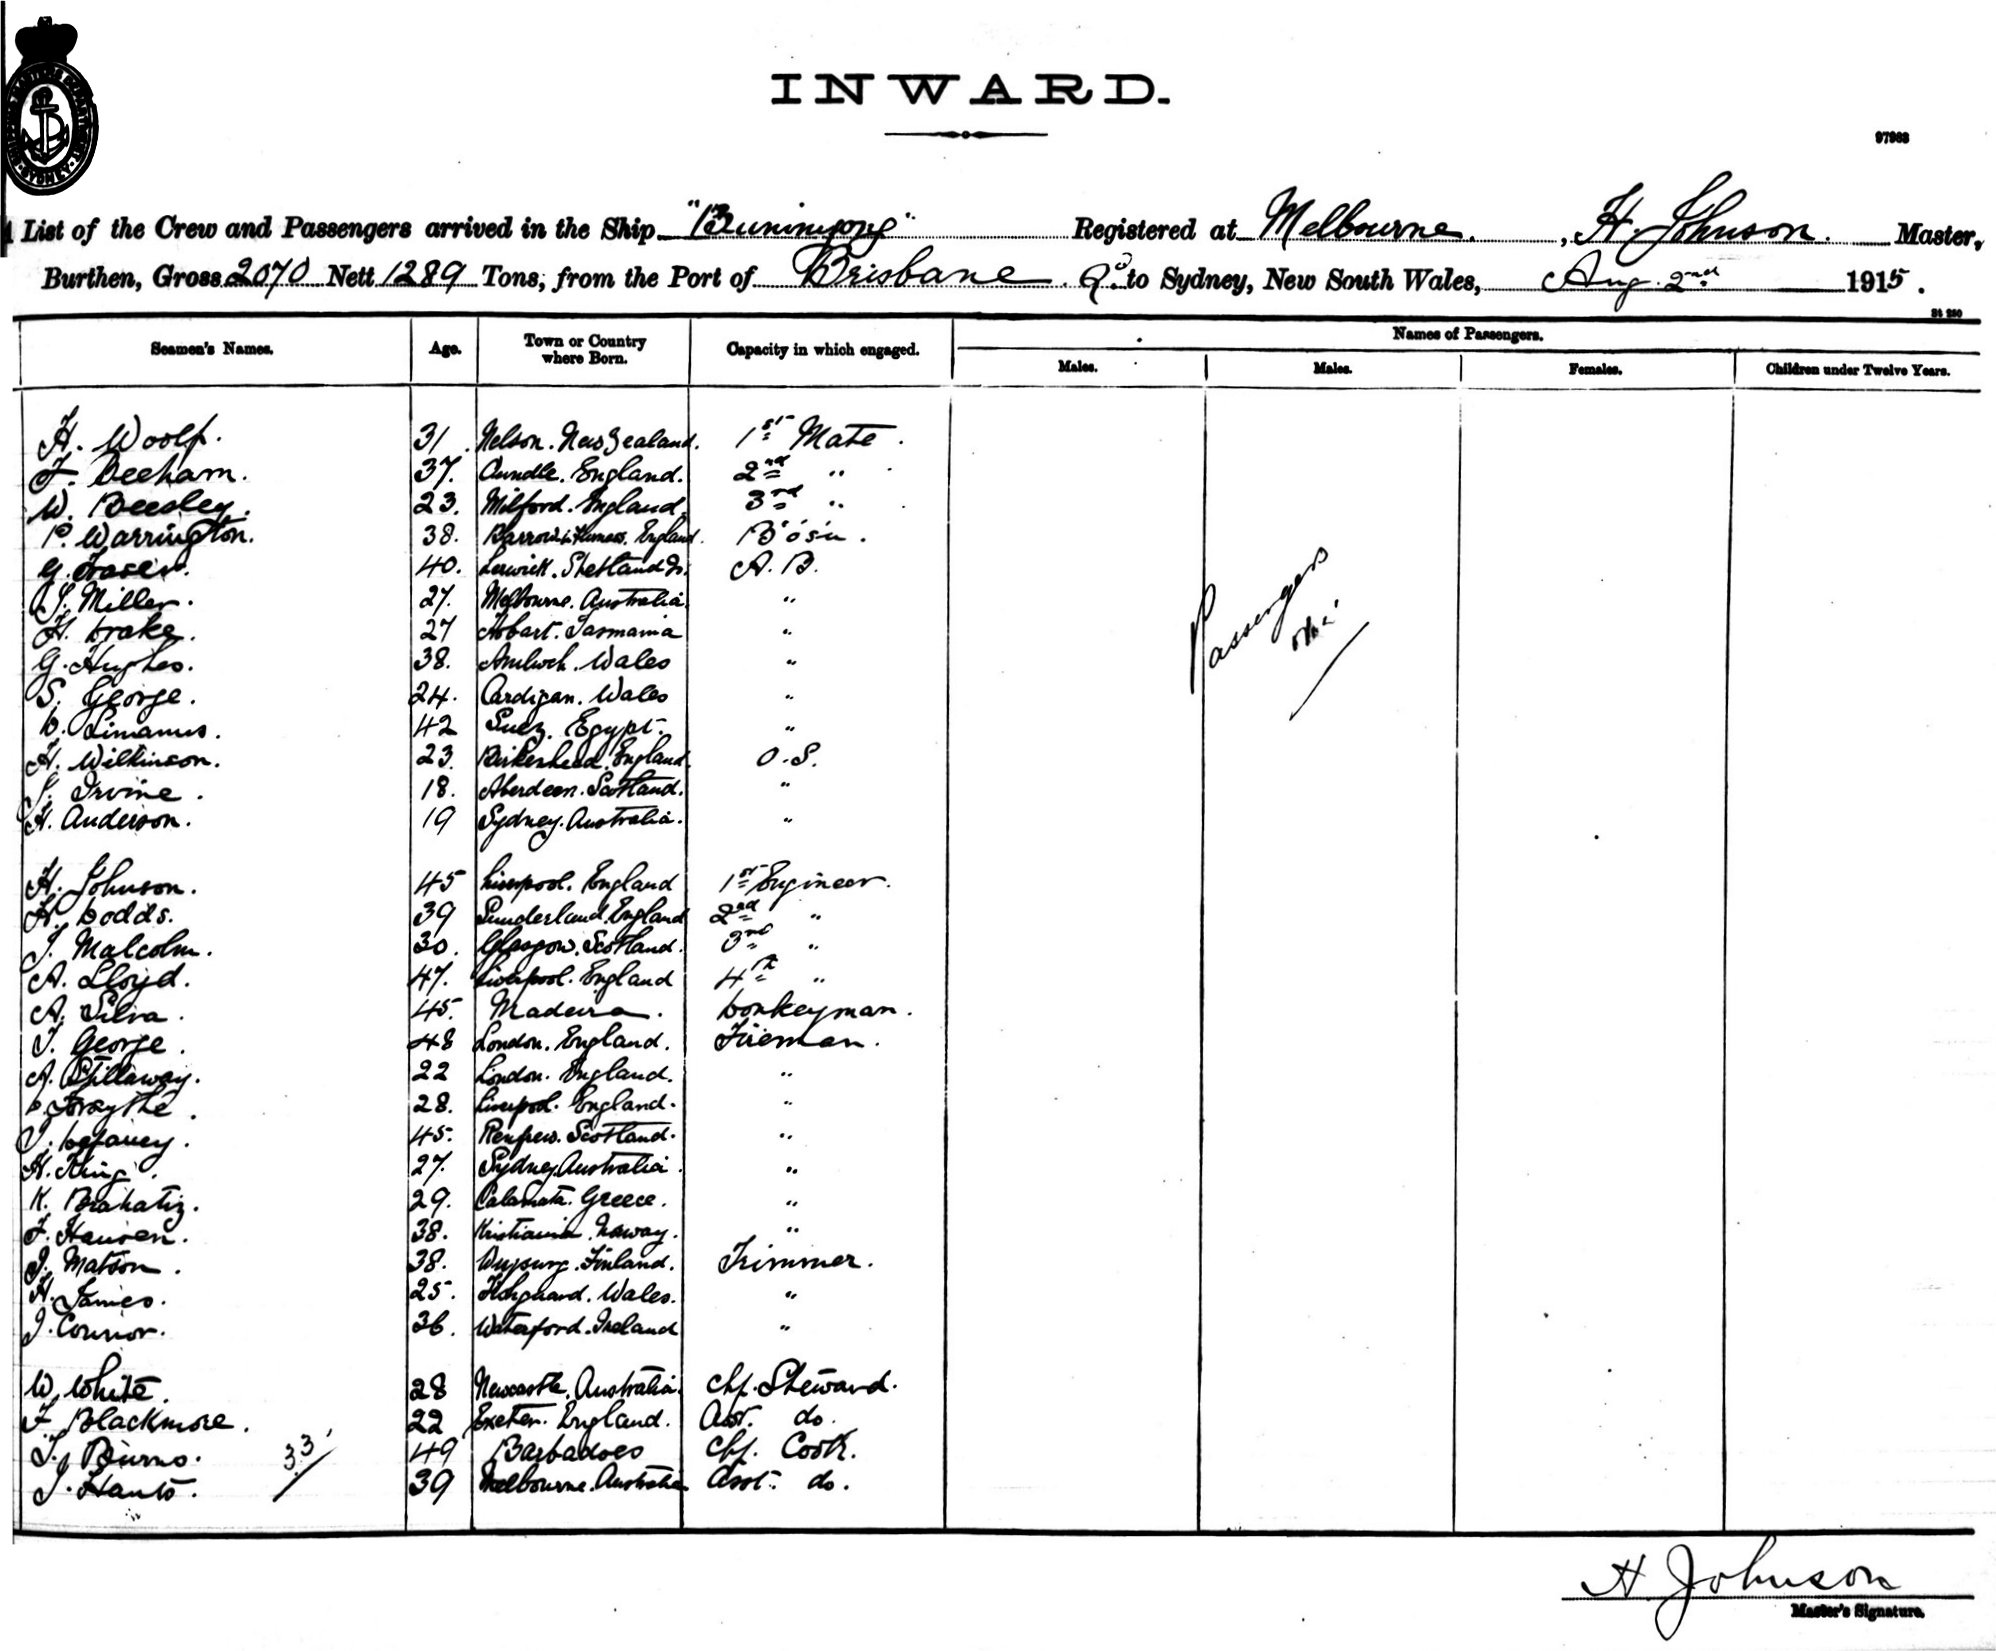 INWARD.
97963
List of the Crew and Passengers arrived in the Ship "Buninyong" Registered at Melbourne. , H. Johnson. Master,
Burthen, Gross 2070 Nett 1289 Tons, from the Port of Brisbane Q. to Sydney, New South Wales, Aug. 2nd 1915.
St 250
Seamen's Names. Age. Town or Country where Born. Capacity in which engaged. Names of Passengers.
Males. Males. Females. Children under Twelve Years.
H. Woolf. 31. Nelson. New Zealand. 1st Mate.
F. Beeham. 37. Oundle. England. 2nd "
W. Beesley. 23. Milford. England. 3rd "
P. Warrington. 38. Barrow in Furness. England. B'o's'n.
G. Fraser. 40. Lerwick. Shetland Is. A.B.
J. Miller. 27. Melbourne. Australia. "
H. Drake. 27 Hobart. Tasmania "
G. Hughes. 38. Amlwch. Wales "
S. George. 24. Cardigan. Wales "
D. Limanus. 42 Suez. Egypt. "
H. Wilkinson. 23. Birkenhead. England. O.S.
J. Irvine. 18. Aberdeen. Scotland. "
H. Anderson. 19 Sydney. Australia. "
H. Johnson. 45 Liverpool. England 1st Engineer.
H. Dodds. 39 Sunderland. England 2nd "
J. Malcolm. 30. Glasgow. Scotland. 3rd "
A. Lloyd. 47. Liverpool. England 4th "
A. Silva. 45. Madeira. Donkeyman.
J. George. 48 London. England. Fireman.
A. Stillaway. 22 London. England. "
D. Forsythe. 28. Liverpool. England. "
J. 45. Renfrew. Scotland. "
H. King. 27. Sydney. Australia. "
K. Brahatiz. 29. Calamata. Greece. "
F. Hansen. 38. Kristiania. Noway. "
J. Matson. 38. Finland. Trimmer.
H. James. 25. Wales. "
J. Connor. 36. Waterford. Ireland "
W. White. 28 Newcastle. Australia. Chf. Steward.
F. Blackmore. 22 Exeter. England. Asst. do.
T. Burns. 49 Barbadoes Chf. Cook.
J. Hants. 39 Melbourne. Australia Asst. do.
33
Passengers
Nil
H Johnson
Master's Signature.